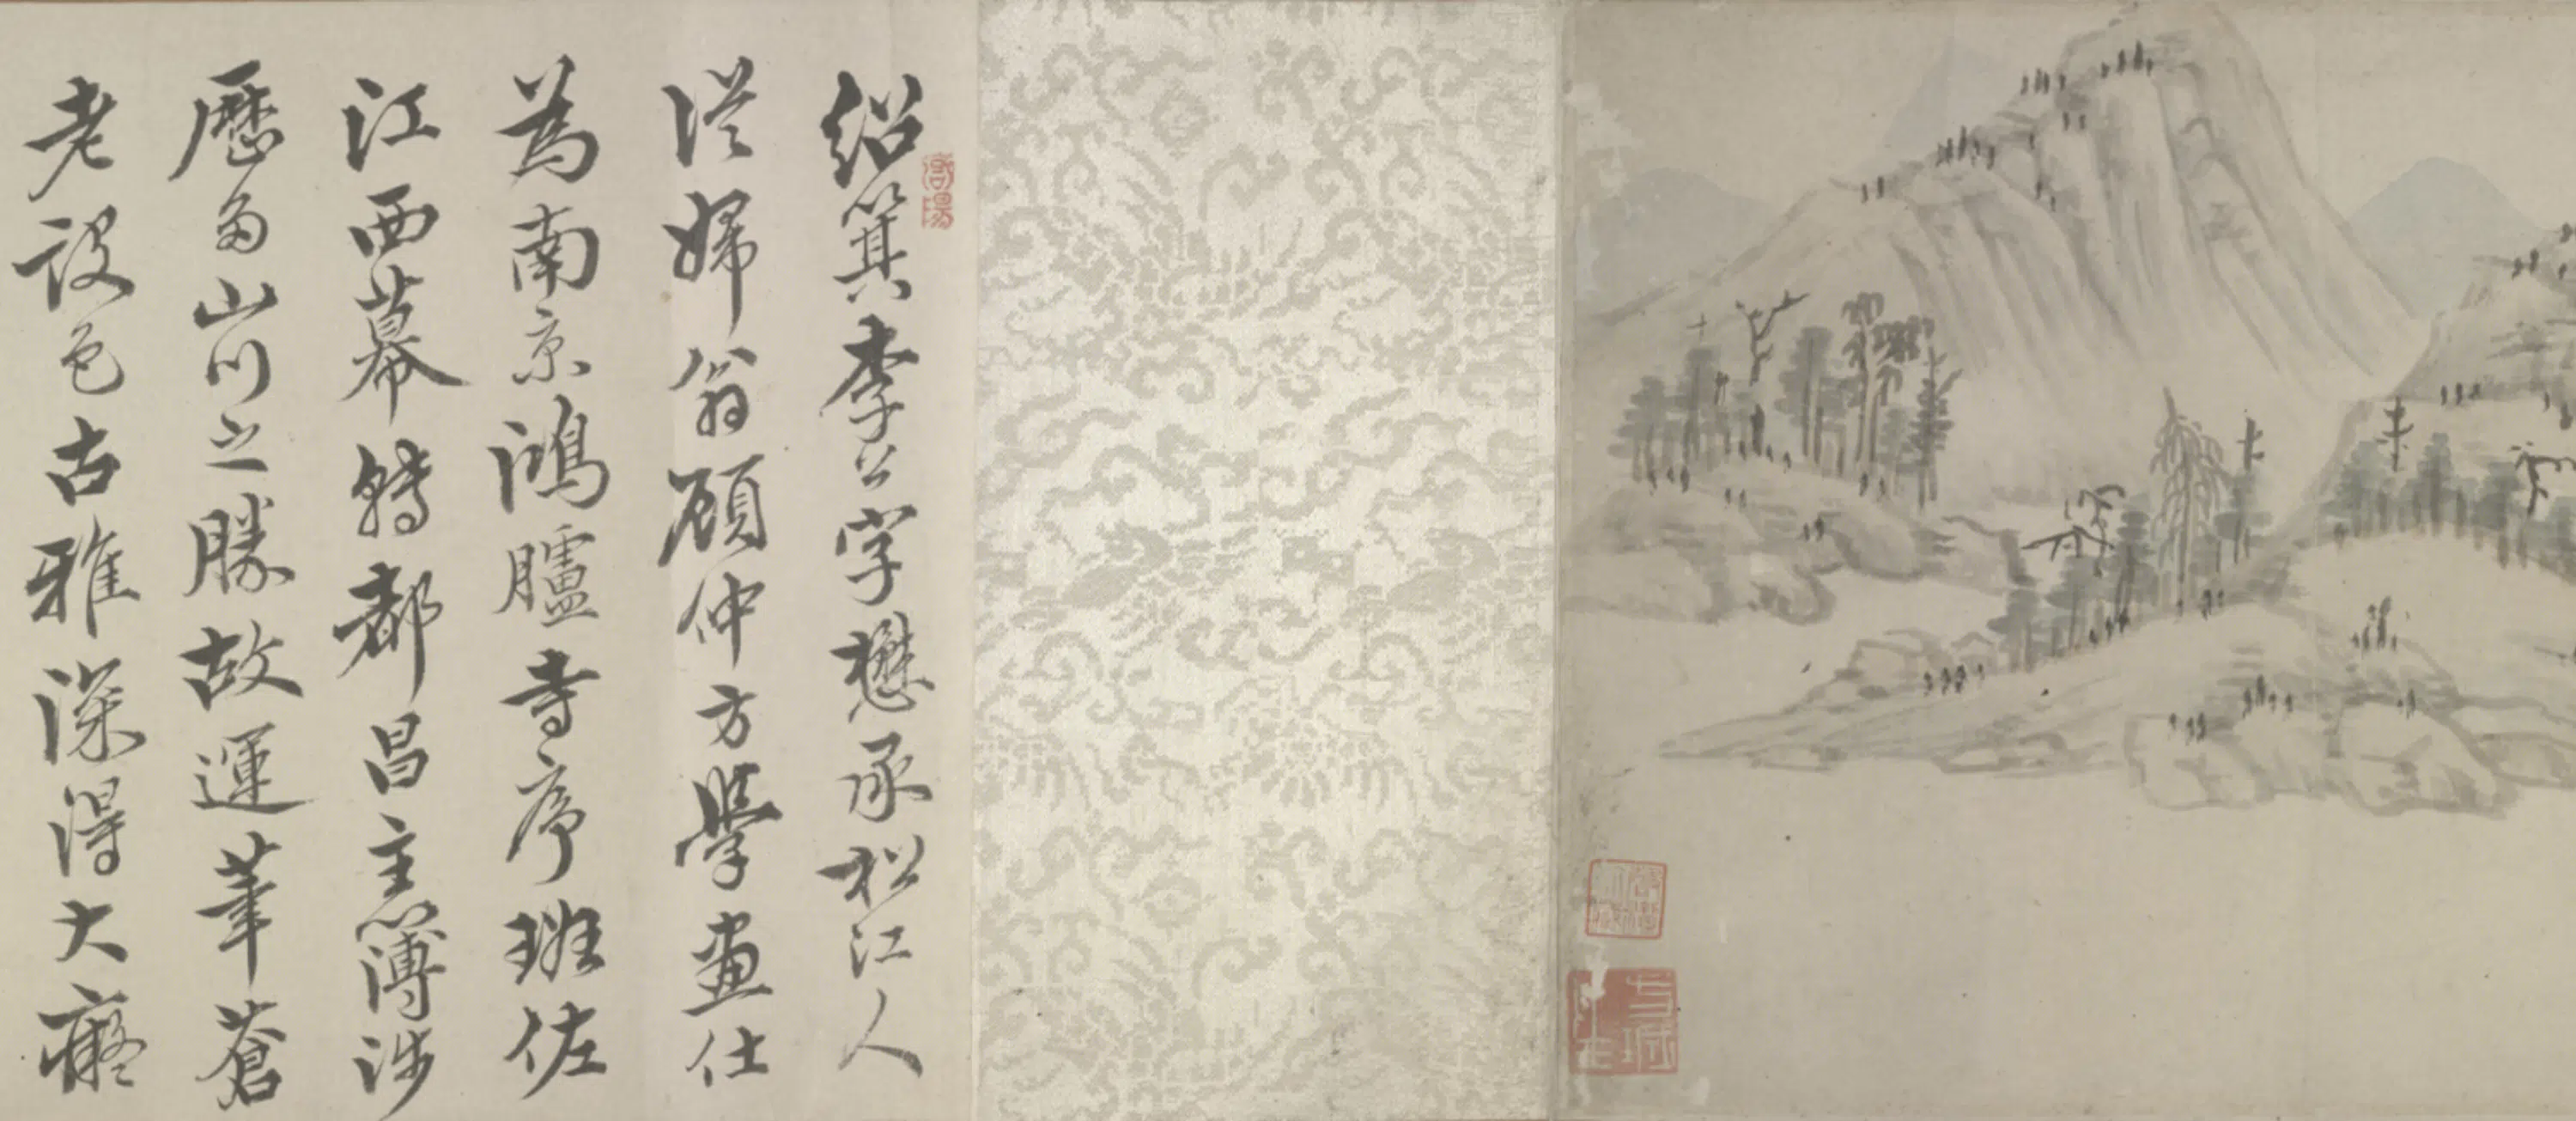 紹箕李公字懋承松江人
從婦翁顧仲方學畫仕
為南京鴻臚寺序班佐
江西幕轉都昌主簿涉
歷多山川之勝故運筆蒼
老設色古雅深得大癡